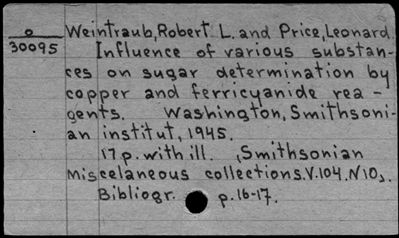 o
30095
Weintraub, Robert L. and Price, Leonard
Influence of various substan-
ces on sugar determination by
copper and ferricyanide rea-
gents. Washington, Smithsoni-
an institut, 1945.
17p. with ill. , Smithsonian
Miscelaneous collections. V.104. N10,.
Bibliogr. p.16-17.